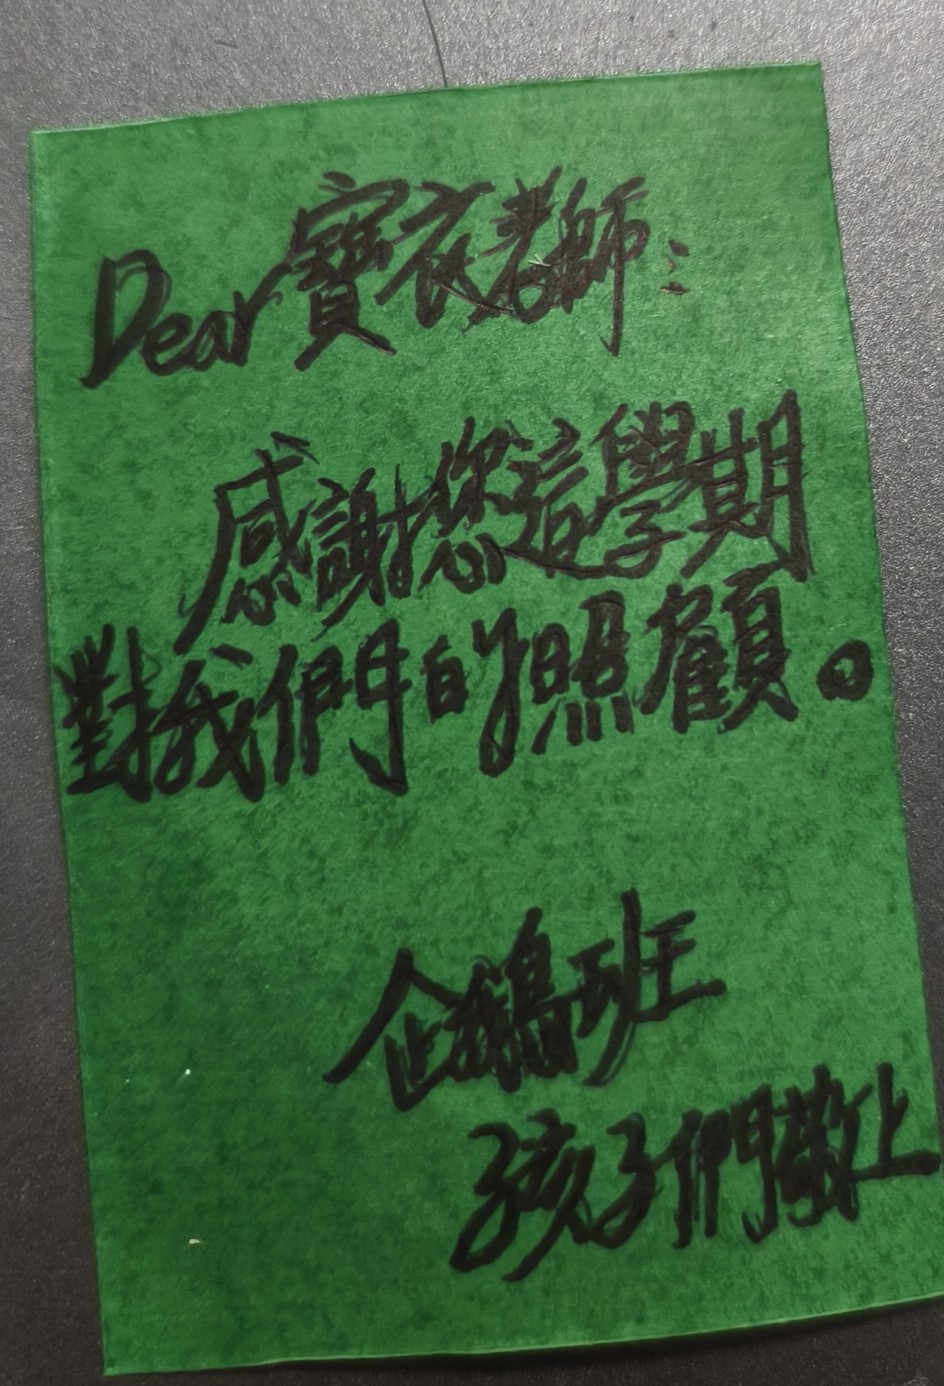 Dear 寶衣老師：
感謝您這學期
對我們的照顧。
企鵝班
孩子們敬上